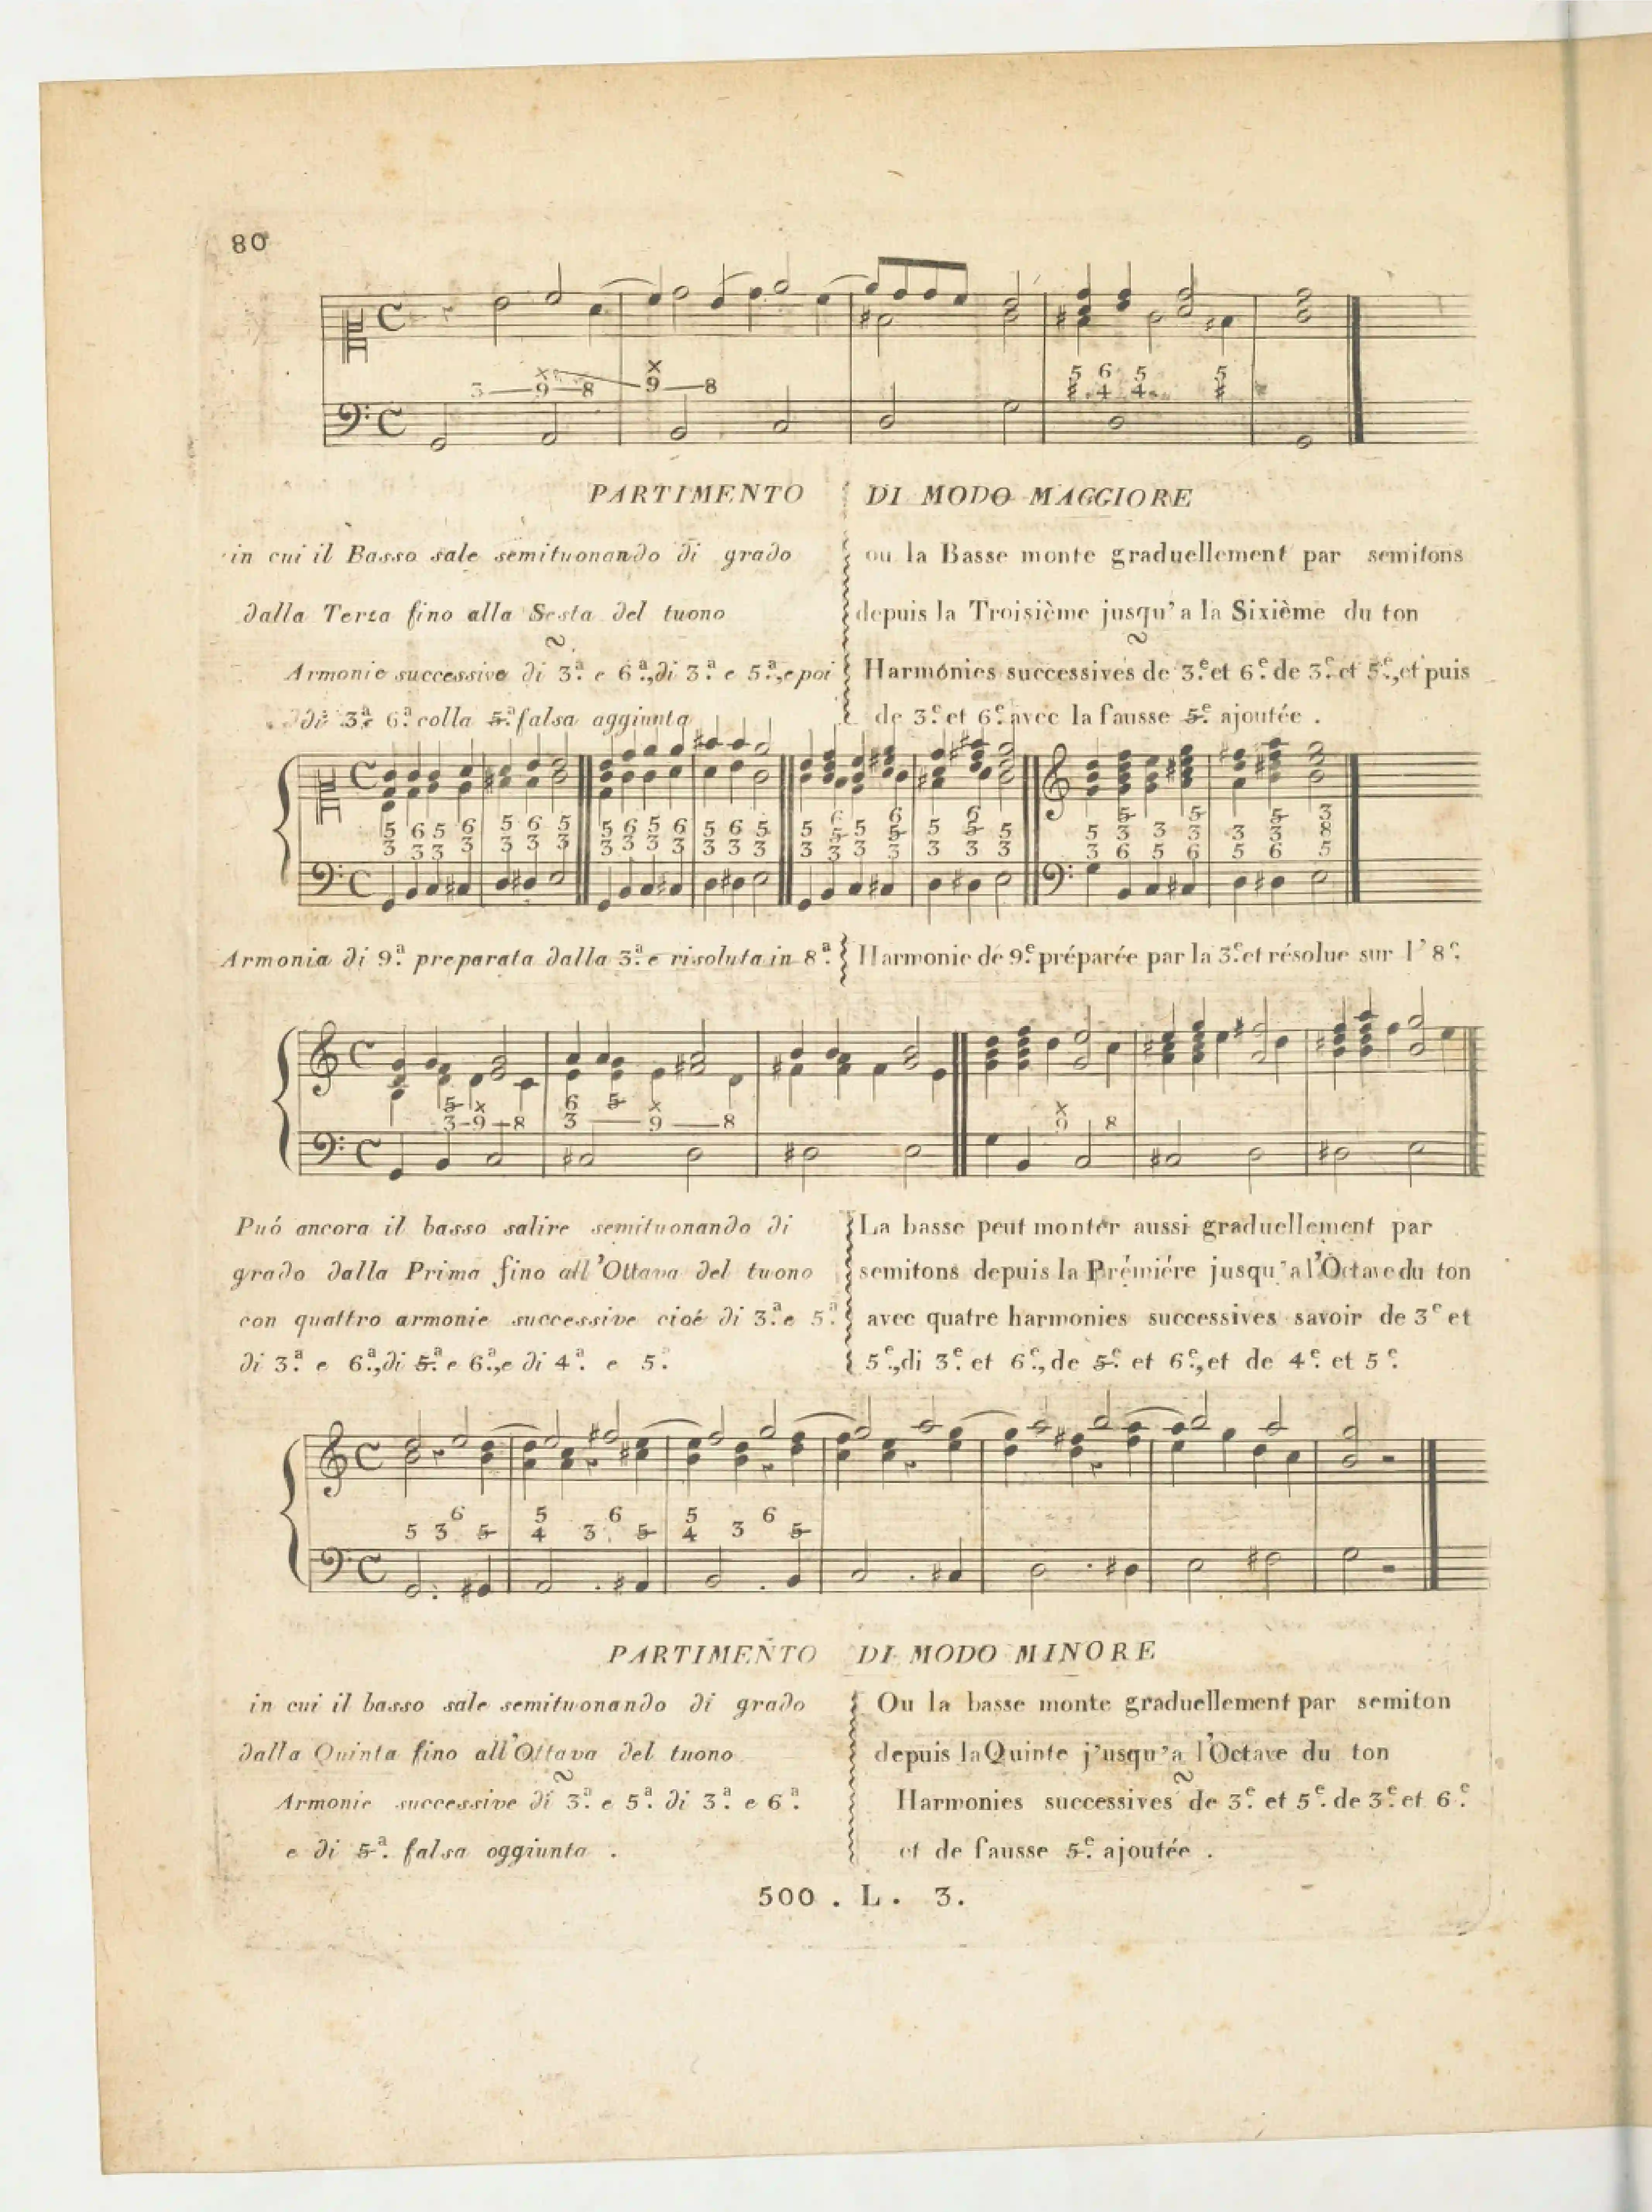 80
3 — 9 — 8 9 — 8 5 6 5 5
4 4
PARTIMENTO DI MODO MAGGIORE
in cui il Basso sale semituonando di grado
dalla Terza fino alla Sesta del tuono
Armonie successive di 3.ª e 6.ª, di 3.ª e 5.ª, e poi
di 3.ª e 6.ª colla 5.ª falsa aggiunta
ou la Basse monte graduellement par semitons
depuis la Troisième jusqu'a la Sixième du ton
Harmónies successives de 3.e et 6.e de 3.e et 5.e, et puis
de 3.e et 6.e avec la fausse 5.e ajoutée .
5 6 5 6 5 6 5 5 6 5 6 5 6 5 5 6 5 6 5 6 5 5 5 3
3 3 3 3 3 3 3 3 3 3 3 3 3 3 5 5 5 3 3 3 3 3 8
3 3 3 3 3 3 3 3 6 5 6 5 6 5
Armonia di 9.ª preparata dalla 3.ª e risoluta in 8.ª
Harmonie de 9.e préparée par la 3.e et résolue sur l' 8.e
5 x 6 5 x x
3 – 9 – 8 3 — 9 — 8 9 8
Puó ancora il basso salire semituonando di
grado dalla Prima fino all'Ottava del tuono
con quattro armonie successive cioé di 3.ª e 5.ª
di 3.ª e 6.ª, di 5.ª e 6.ª, e di 4.ª e 5.ª
La basse peut monter aussi graduellement par
semitons depuis la Prémiére jusqu'a l'Octave du ton
avec quatre harmonies successives savoir de 3e et
5.e, di 3.e et 6.e, de 5.e et 6.e, et de 4.e et 5.e
6 5 6 5 6
5 3 5 4 3 5 4 3 5
PARTIMENTO DI MODO MINORE
in cui il basso sale semituonando di grado
dalla Quinta fino all'Ottava del tuono
Armonie successive di 3.ª e 5.ª di 3.ª e 6.ª
e di 5.ª falsa oggiunta .
Ou la basse monte graduellement par semiton
depuis la Quinte j'usqu'a l'Octave du ton
Harmonies successives de 3.e et 5.e de 3.e et 6.e
et de fausse 5.e ajoutée .
500 . L . 3 .